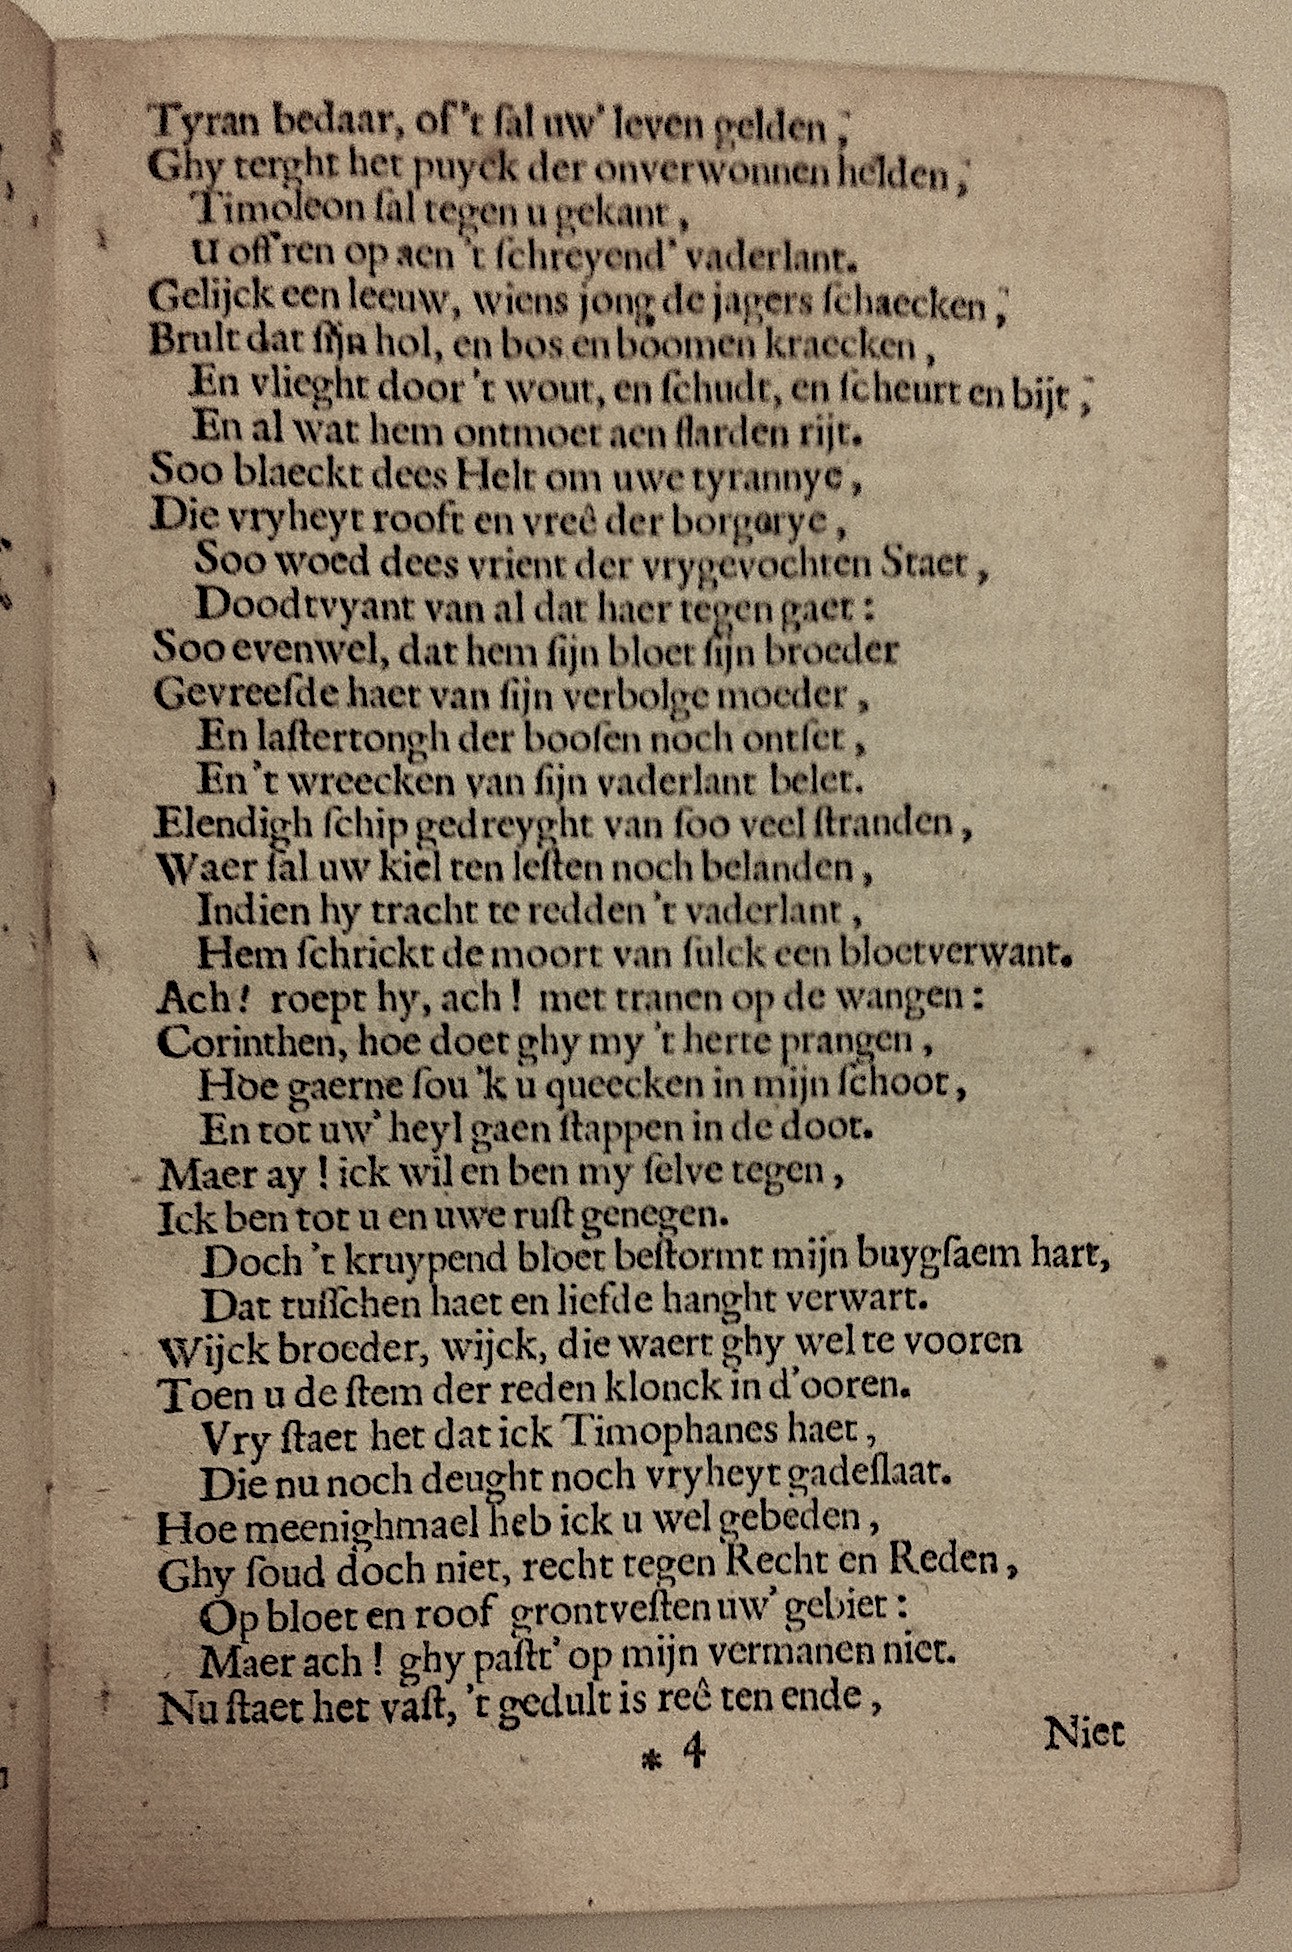 Tyran bedaar, of 't ſal uw' leven gelden,
Ghy terght het puyck der onverwonnen helden,
Timoleon ſal tegen u gekant,
U off'ren op aen 't ſchreyend' vaderlant.
Gelijck een leeuw, wiens jong de jagers ſchaecken,
Brult dat ſijn hol, en bos en boomen kraecken,
En vlieght door 't wout, en ſchudt, en ſcheurt en bijt,
En al wat hem ontmoet aen flarden rijt.
Soo blaeckt dees Helt om uwe tyrannye,
Die vryheyt rooft en vreê der borgerye,
Soo woed dees vrient der vrygevochten Staet,
Doodtvyant van al dat haer tegen gaet:
Soo evenwel, dat hem ſijn bloet ſijn broeder
Gevreeſde haet van ſijn verbolge moeder,
En laſtertongh der booſen noch ontſet,
En 't wreecken van ſijn vaderlant belet.
Elendigh ſchip gedreyght van ſoo veel ſtranden,
Waer ſal uw kiel ten leſten noch belanden,
Indien hy tracht te redden 't vaderlant,
Hem ſchrickt de moort van ſulck een bloetverwant.
Ach! roept hy, ach! met tranen op de wangen:
Corinthen, hoe doet ghy my 't herte prangen,
Hoe gaerne ſou 'k u queecken in mijn ſchoot,
En tot uw' heyl gaen ſtappen in de doot.
Maer ay! ick wil en ben my ſelve tegen,
Ick ben tot u en uwe ruſt genegen.
Doch 't kruypend bloet beſtormt mijn buygſaem hart,
Dat tuſſchen haet en liefde hanght verwart.
Wijck broeder, wijck, die waert ghy wel te vooren
Toen u de ſtem der reden klonck in d'ooren.
Vry ſtaet het dat ick Timophanes haet,
Die nu noch deught noch vryheyt gadeſlaat.
Hoe meenighmael heb ick u wel gebeden,
Ghy ſoud doch niet, recht tegen Recht en Reden,
Op bloet en roof grontveſten uw' gebiet:
Maer ach! ghy paſt' op mijn vermanen niet.
Nu ſtaet het vaſt, 't gedult is reê ten ende,
* 4
Niet